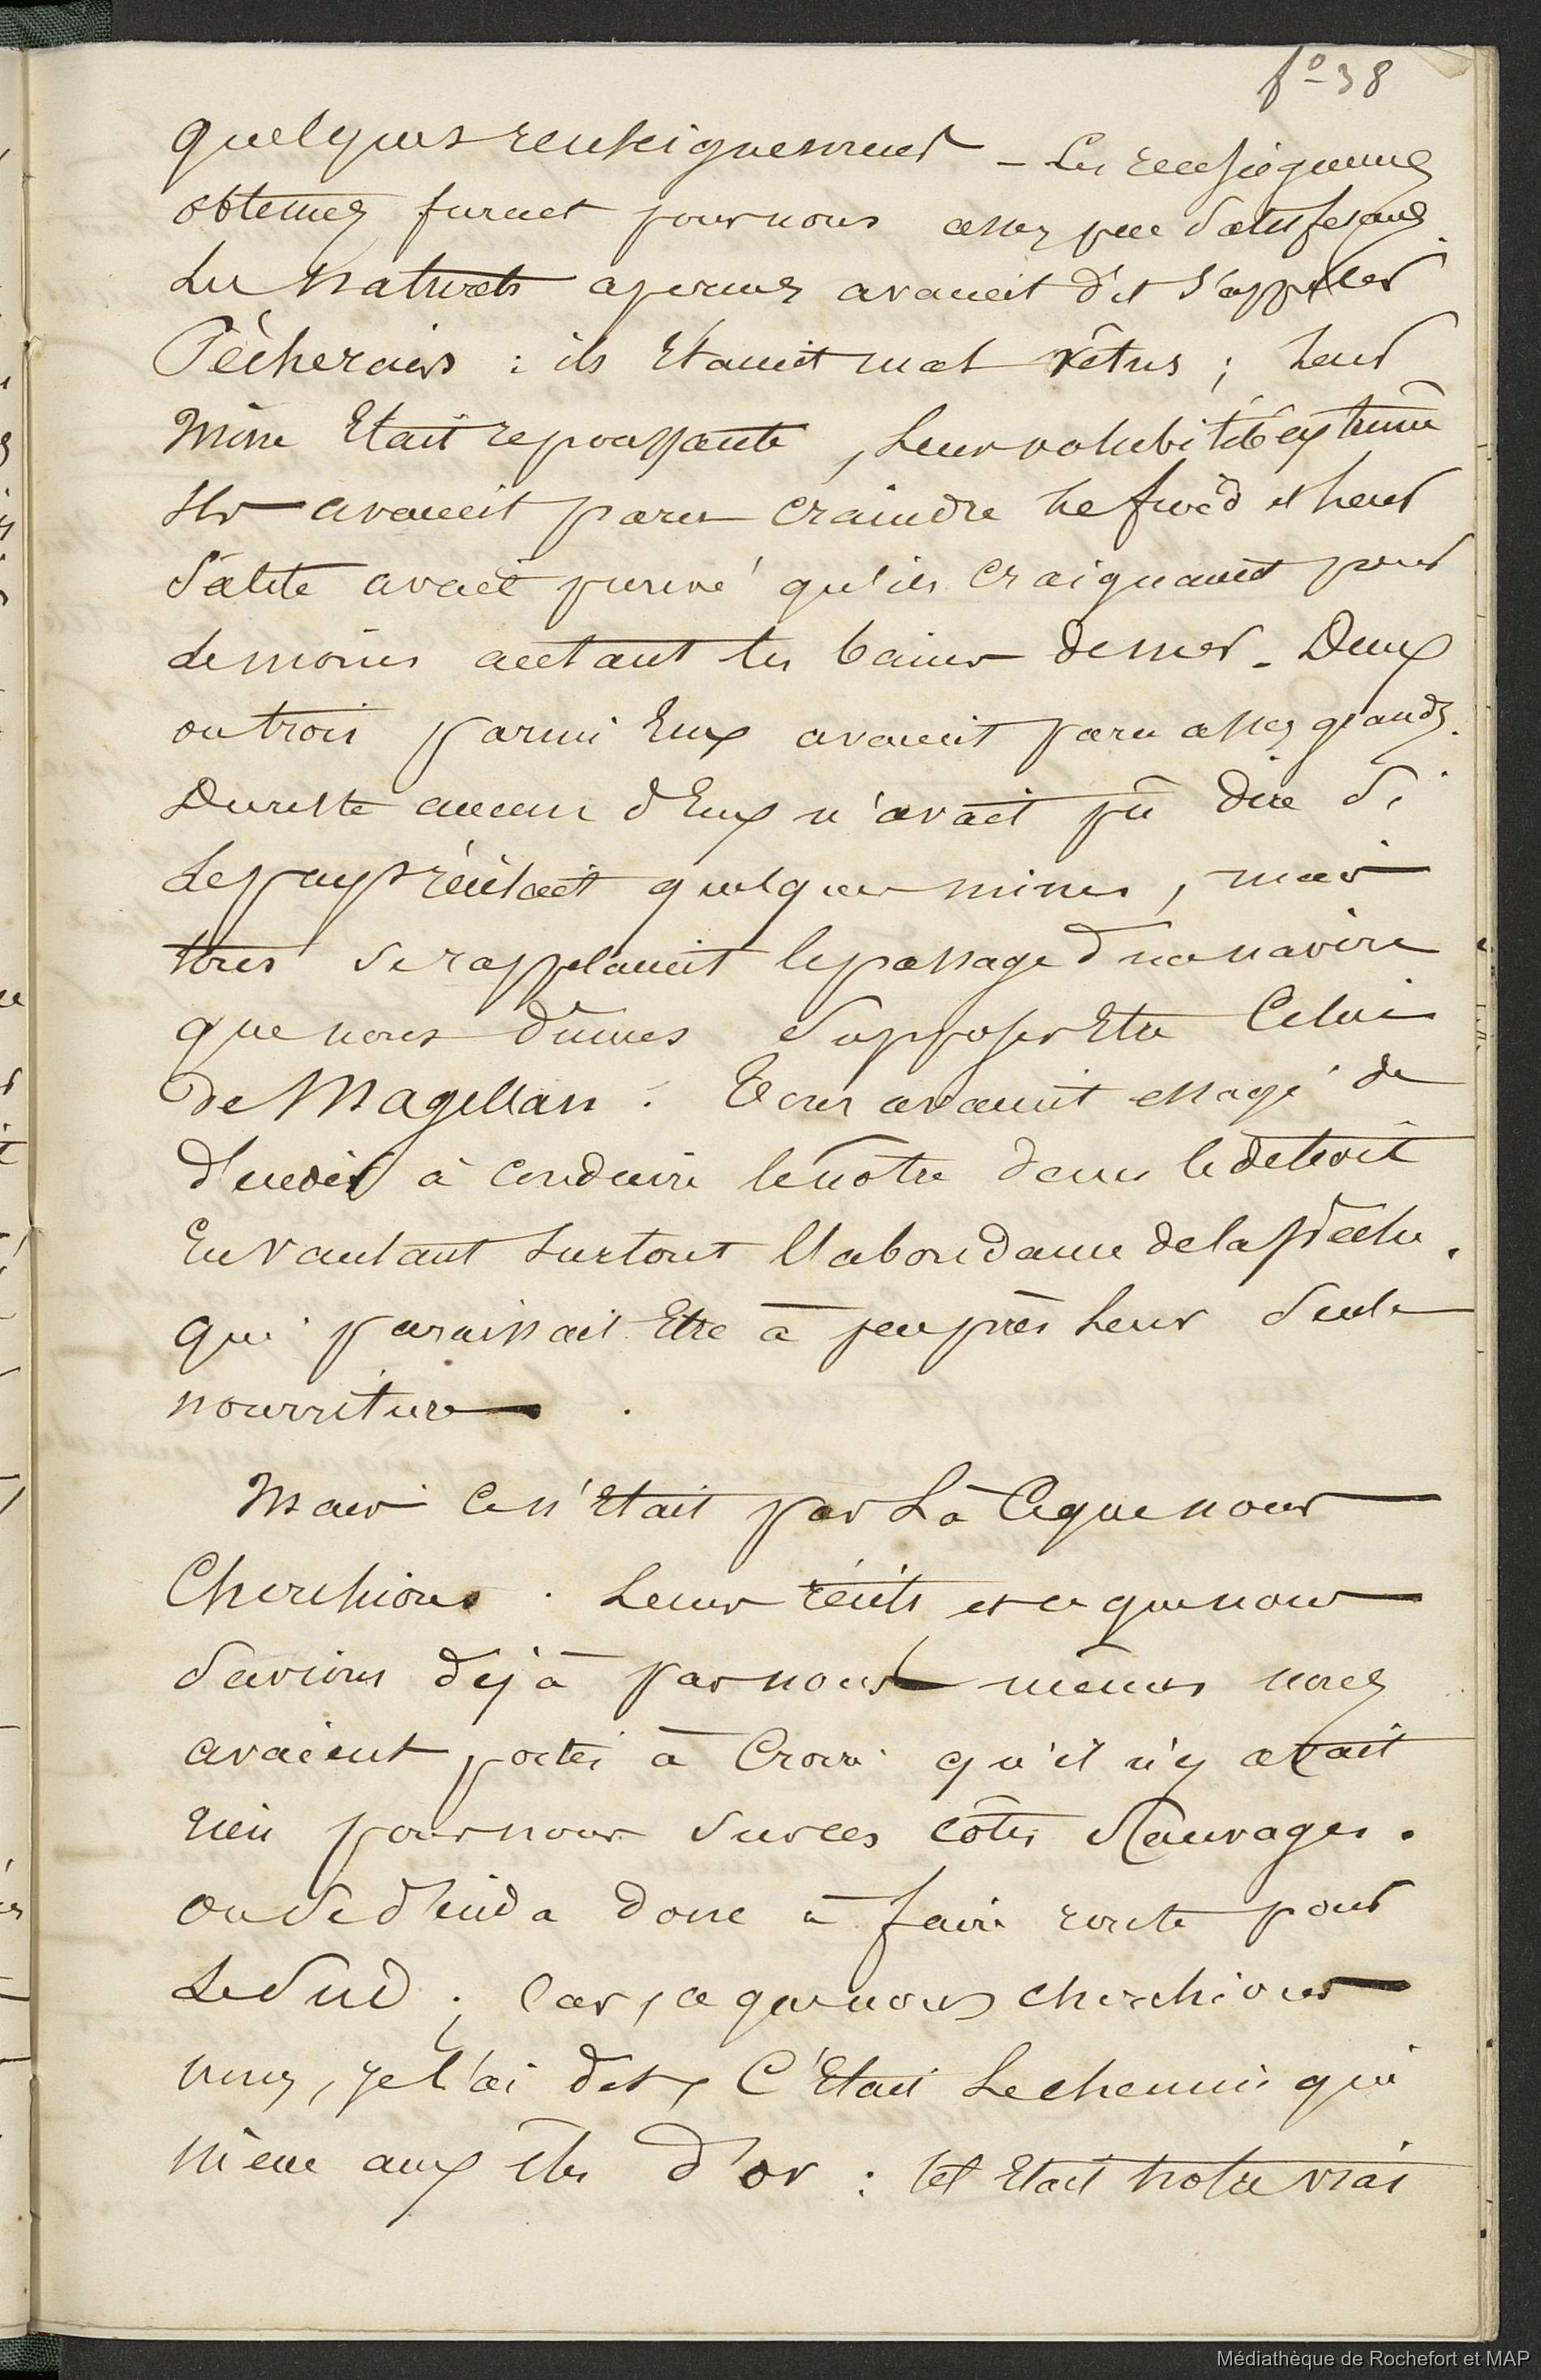 fo 38
quelques renseignements – Les renseignements
obtenus furent pour nous assez peu satisfesants.
Les naturels aperçus avaient dit s'appeler
Pêcherais : ils Etaient mal vêtus ; leur
mine Etait repoussante, leur volubilité extrême
Ils avaient paru craindre le froid et leur
saleté avait prouvé qu'ils craignaient pour
le moins autant les bains de mer – Deux
ou trois parmi Eux avaient paru assez grands.
Dureste aucun d'Eux n'avait pû dire si
le pays récelait quelques mines, mais
tous se rappelaient le passage d'un navire
que nous dûmes supposer Etre Celui
de Magellan. Tous avaient essayé de
d'engager à conduire le nôtre dans le détroit
En vantant surtout l'abondance de la pêche,
qui paraissait Etre à peu près leur seule
nourriture.
Mais ce n'Etait pas Là Ceque nous
Cherchions. Leurs récits et ce que nous
savions déjà par nous mêmes nous
avaient portés à Croire qu'il n'y avait
rien pour nous sur ces côtes sauvages.
On se décida donc à faire route pour
le sud ; Car, ce que nous cherchions
nous, je l'ai dit, C'Etait le chemin qui
mène aux îles d'or : tel Etait notre vrai
Médiathèque de Rochefort et MAP